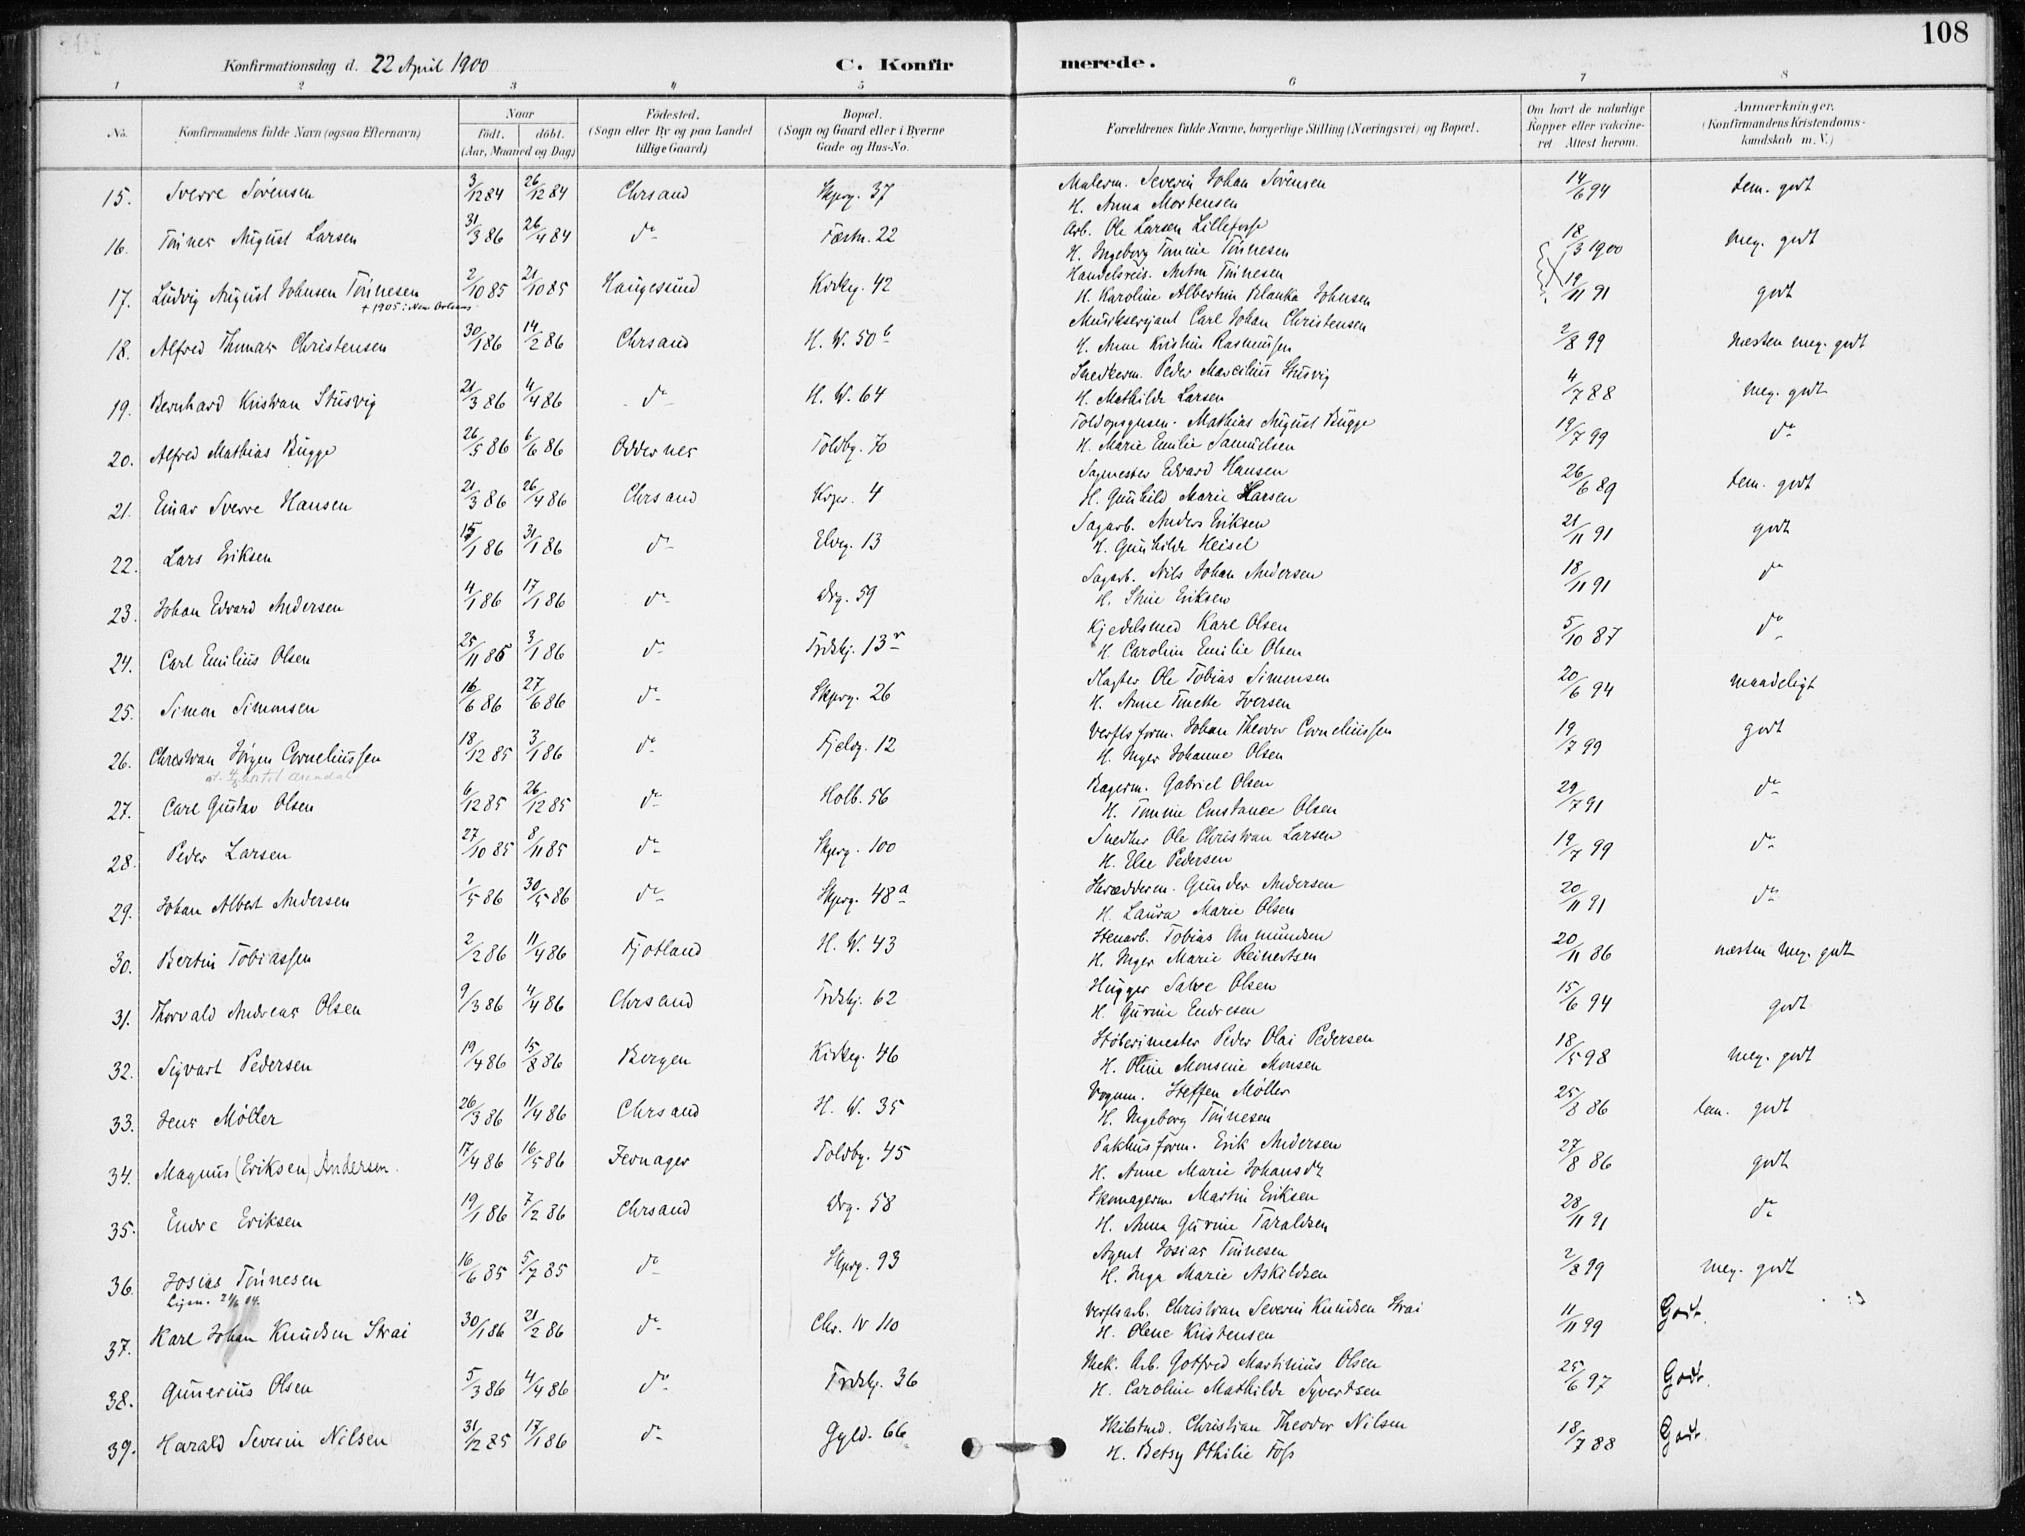 108
Konfirmationsdag d. 22 April 1900
C. Konfirmerede.
1 2 3 4 5 6 7 8
No. Konfirmandens fulde Navn (ogsaa Efternavn) Naar födt. döbt. (Aar, Maaned og Dag) Födested. (Sogn eller By og paa Landet tillige Gaard) Bopæl. (Sogn og Gaard eller i Byerne Gade og Hus-No. Forældrenes fulde Navne, borgerlige Stilling (Næringsvei) og Bopæl. Om havt de naturlige Kopper eller vakcineret. Attest herom. Anmærkninger. (Konfirmandens Kristendomskundskab m. V.)
15. Sverre Sörensen 3/12 84 26/12 84 Chrsand Skprg. 37 Malerm. Severin Johan Sörensen 14/6 94 tem. godt
H. Anna Mortensen
16. Tönnes August Larsen 31/3 86 26/4 84 do Fæstn. 22 Arb. Ole Larsen Lillefosse 18/3 1900 meg. godt
H. Ingeborg Tomine Tönnesen
17. Ludvig August Johnsen Tönnesen 2/10 85 21/10 85 Haugesund Kirkeg. 42 Handelsreis. Anton Tönnesen 19/11 91 godt
+ 1905 i New Orleans
H. Karoline Albertine Blanka Johnsen
18. Alfred Thomas Christensen 30/1 86 14/2 86 Chrsand H. W. 50 b Musikserjant Carl Johan Christensen 2/8 99 næsten meg. godt
H. Anne Kristine Rasmussen
19. Bernhard Kristian Stusvig 21/3 86 4/4 86 do H. W. 64 Snedkerm. Peder Marcelius Stusvig 4/7 88 meg. godt
H. Mathilde Larsen
20. Alfred Mathias Bugge 26/5 86 6/6 86 Oddernes Toldbg. 70 Toldopsynsm. Mathias August Bugge 19/7 99 do
H. Marie Emilie Samuelsen
21. Einar Sverre Hansen 21/3 86 26/4 86 Chrsand Krgs. 4 Sagmester Edvard Hansen 26/6 89 tem. godt
H. Gunhild Marie Larsen
22. Lars Eriksen 15/1 86 31/1 86 do Elveg. 13 Sagarb. Anders Eriksen 21/11 91 godt
H. Gunhilde Heisel
23. Johan Edvard Andersen 4/1 86 17/1 86 do Drg. 59 Sagarb. Nils Johan Andersen 18/11 91 do
H. Stine Eriksen
24. Carl Emilius Olsen 25/11 85 3/1 86 do Frdskj. 13 Kjedelsmed Karl Olsen 5/10 87 do
H. Caroline Emilie Olsen
25. Simon Simonsen 16/6 86 27/6 86 do Skprg. 26 Slagter Ole Tobias Simonsen 20/6 94 maadeligt
H. Anne Tinette Iversen
26. Christian Jörgen Corneliussen 18/12 85 3/1 86 do Fjeldg. 12 Verftsform. Johan Theodor Corneliussen 19/7 99 godt
H. Inger Johanne Olsen
27. Carl Gustav Olsen 6/12 85 26/12 85 do Holb. 56 Bagerm. Gabriel Olsen 29/7 91 do
H. Tomine Constance Olsen
28. Peder Larsen 27/10 85 8/11 85 do Skprg. 100 Snedker Ole Christian Larsen 19/7 99 do
H. Else Pedersen
29. Johan Albert Andersen 1/5 86 30/5 86 do Skprg. 48 a Skrædderm. Gunder Andersen 20/11 91 do
H. Laura Marie Olsen
30. Bertin Tobiassen 2/2 86 11/4 86 Fjotland H. W. 43 Stenarb. Tobias Omundsen 20/11 86 næsten meg. godt
H. Inger Marie Reinertsen
31. Thorvald Andreas Olsen 9/3 86 4/4 86 Chrsand Frdskj. 62 Hugger Salve Olsen 15/6 94 godt
H. Gurine Endresen
32. Sigvart Pedersen 19/4 86 15/8 86 Bergen Kirkeg. 46 Stöberimester Peder Olai Pedersen 18/5 98 meg. godt
H. Oline Monsine Monsen
33. Jens Möller 26/3 86 11/4 86 Chrsand H. W. 35 Vognm. Steffen Möller 25/8 86 tem. godt
H. Ingeborg Tönnesen
34. Magnus (Eriksen) Andersen. 17/4 86 16/5 86 Jernager Toldbg. 45 Pakhusform. Erik Andersen 27/8 86 godt
H. Anne Marie Johansdr
35. Endre Eriksen 19/1 86 7/2 86 Chrsand Drg. 58 Skomagerm. Martin Eriksen 28/11 91 do
H. Anna Gurine Taraldsen
36. Josias Tönnesen 16/6 85 5/7 85 do Skprg. 93 Agent Josias Tönnesen 2/8 99 meg. godt
H. Inga Marie Askildsen
37. Karl Johan Knudsen Strai 30/1 86 21/2 86 do Chr. IV 110 Verftsarb. Christian Severin Knudsen Strai 11/11 99 Godt.
H. Olene Kristensen
38. Gunerius Olsen 5/3 86 4/4 86 do Frdskj. 36 Mek. Arb. Gotfred Martinius Olsen 25/6 97 Godt.
H. Caroline Mathilde Syvertsen
39. Harald Severin Nilsen 31/12 85 17/1 86 do Gyld. 66 Christian Theodor Nilsen 18/7 88 Godt.
H. Betsy Othilie Foss